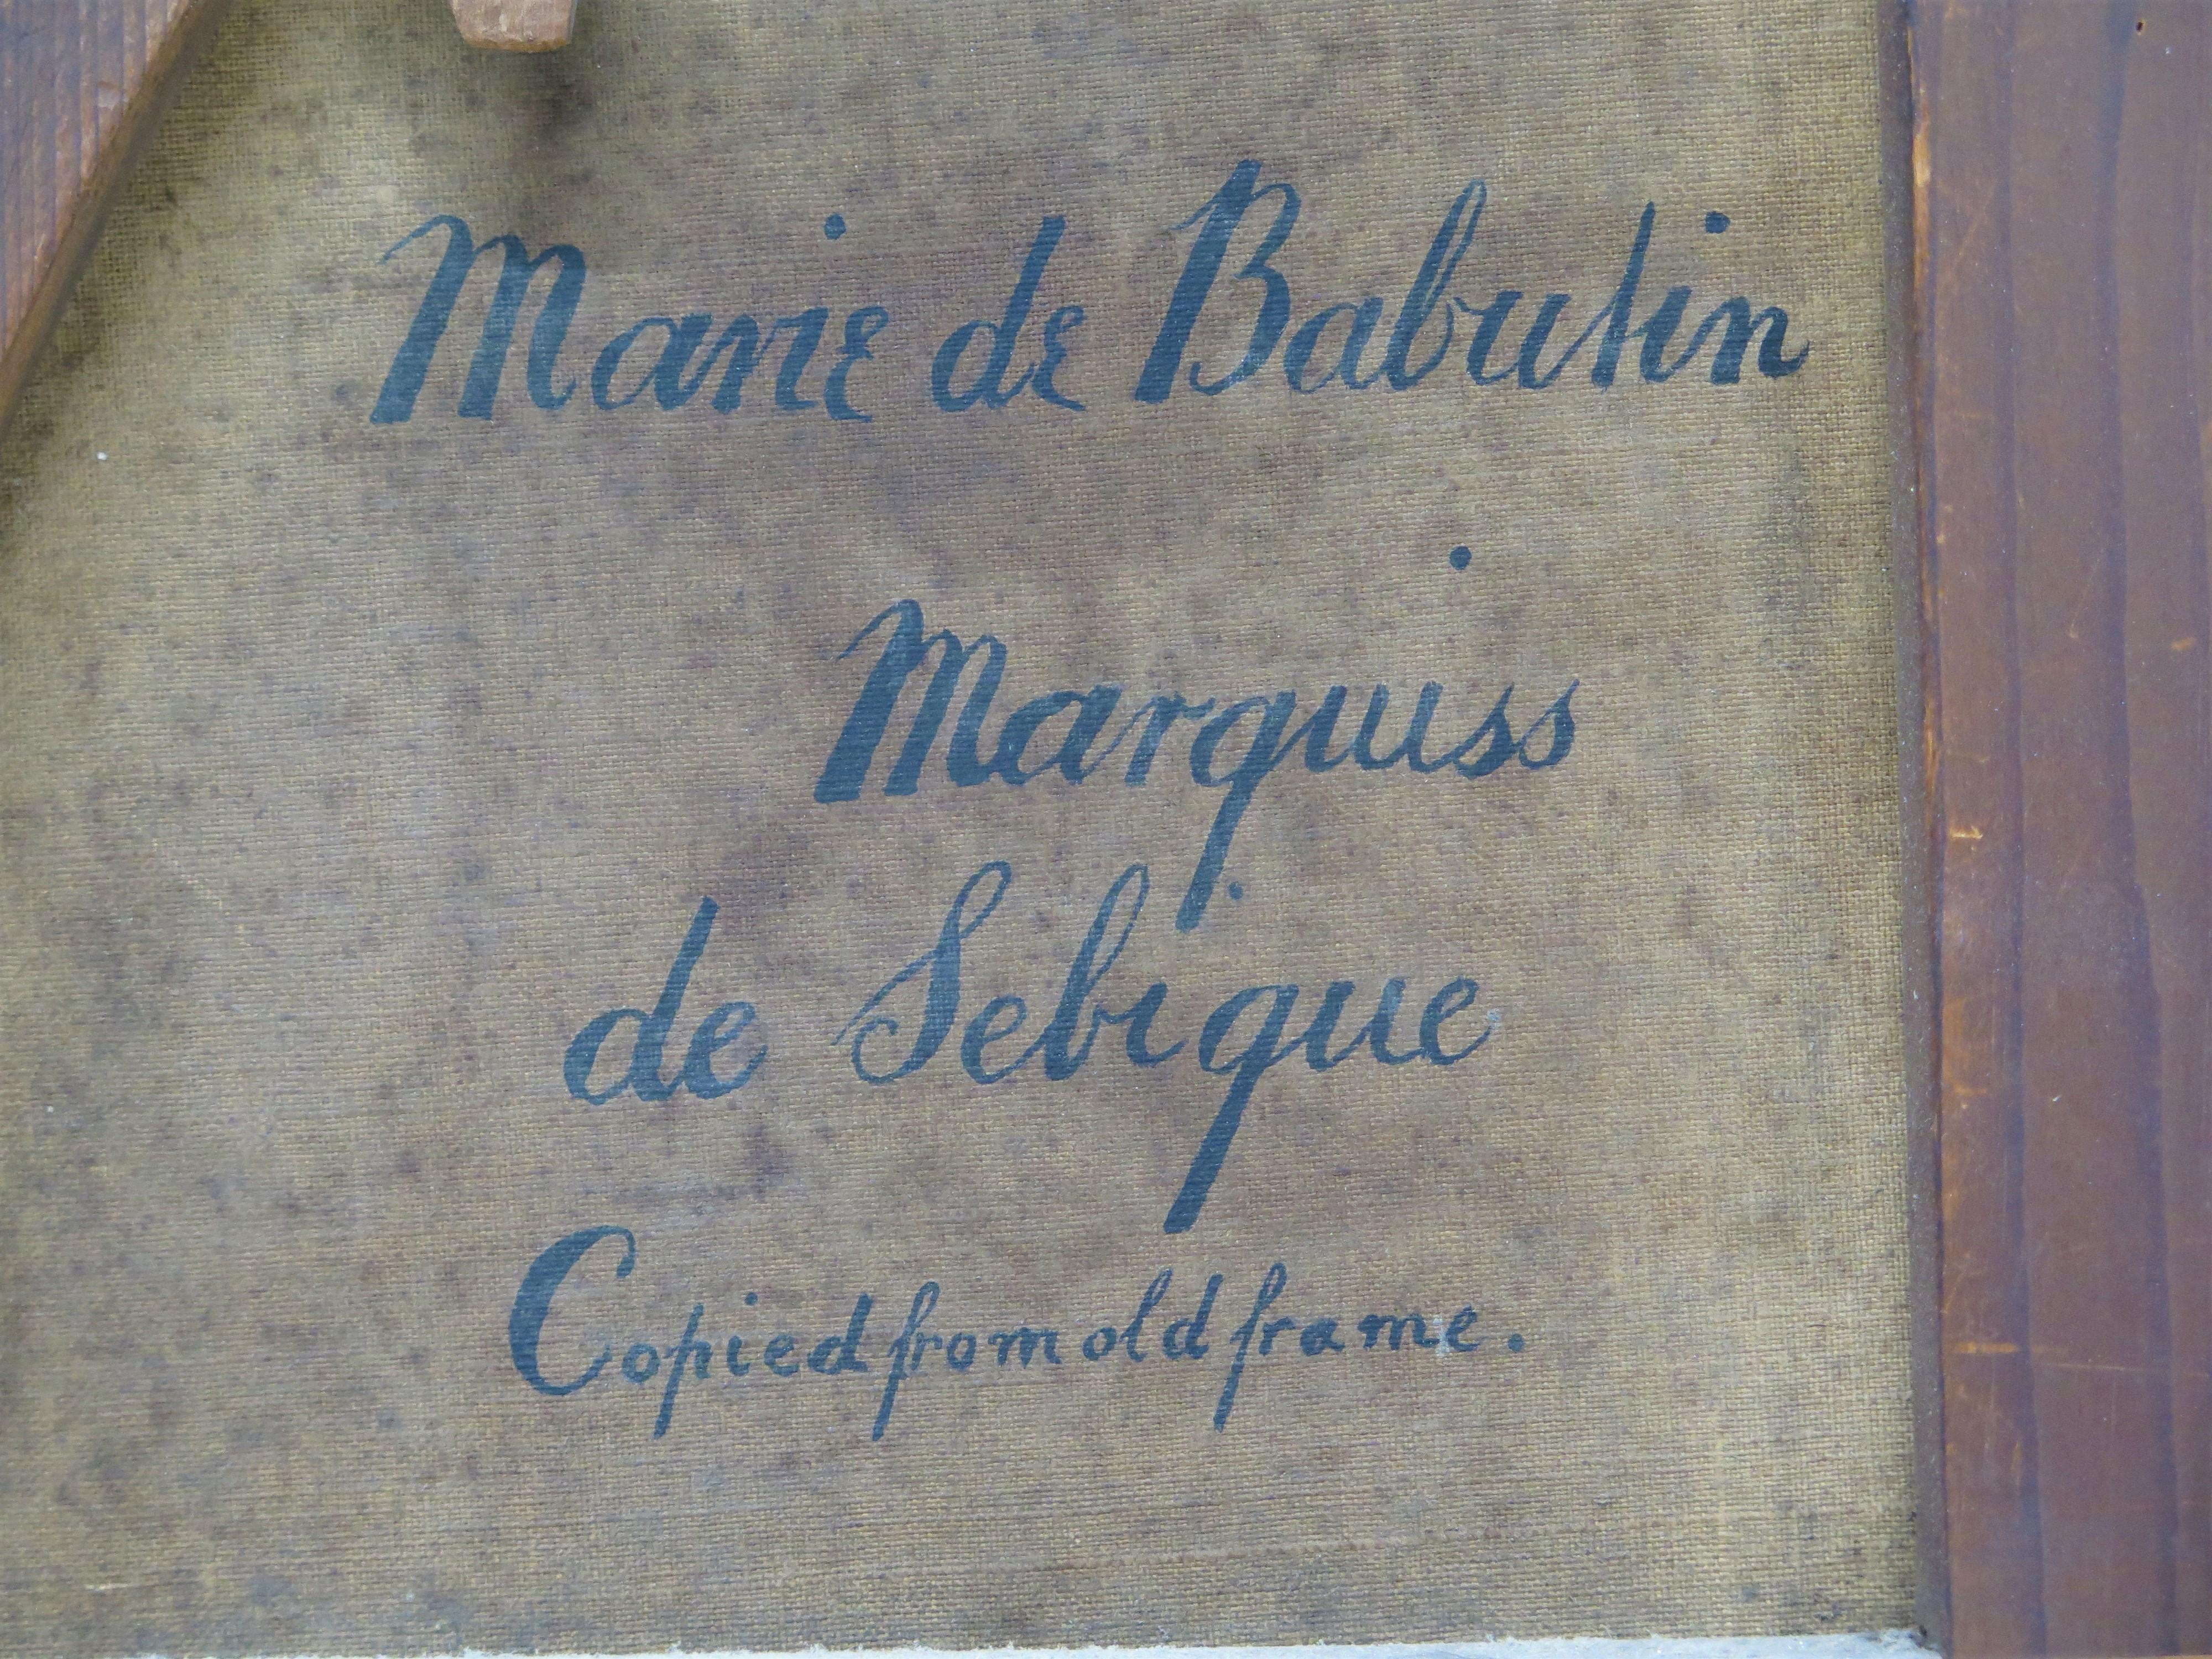 Marie de Babutin
Marquiss
de Sebique
Copied from old frame.